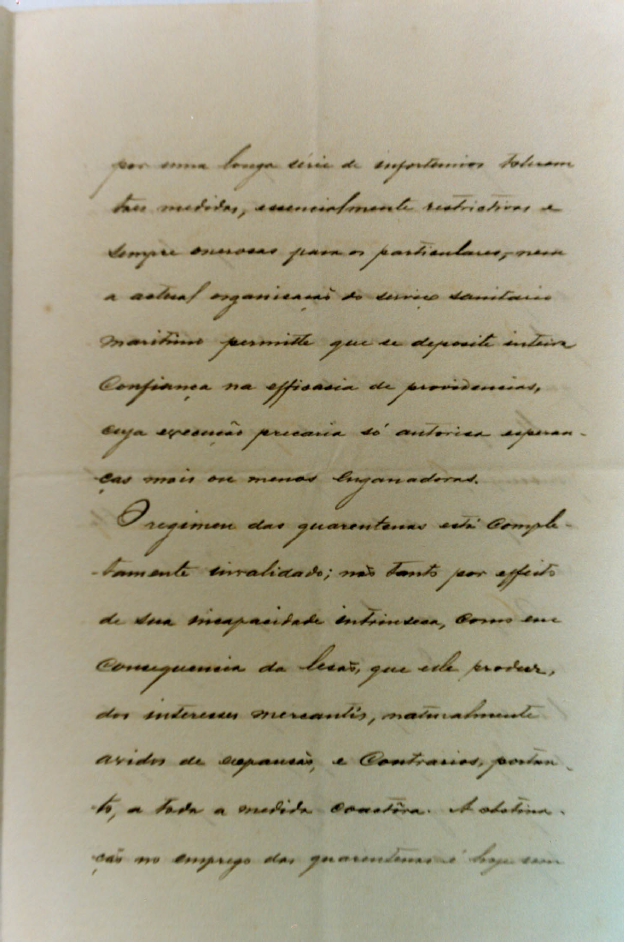 por uma longa série de infortunios toleram
taes medidas, essencialmente restrictivas e
sempre onerosas para os particulares, nem
a actual organisação do serviço sanitario
maritimo permitte que se deposite inteira
confiança na efficacia de providencias,
cuja execução precaria só autorisa esperan-
ças mais ou menos enganadoras.
O regimen das quarentenas está comple-
-tamente invalidado; não tanto por effeito
de sua incapacidade intrinseca, como em
consequencia da lesão, que elle produz,
dos interesses mercantis, naturalmente
avidos de expansão, e contrarios, portan-
-to, a toda a medida coactiva. A obstina-
-ção no emprego das quarentenas é hoje sem